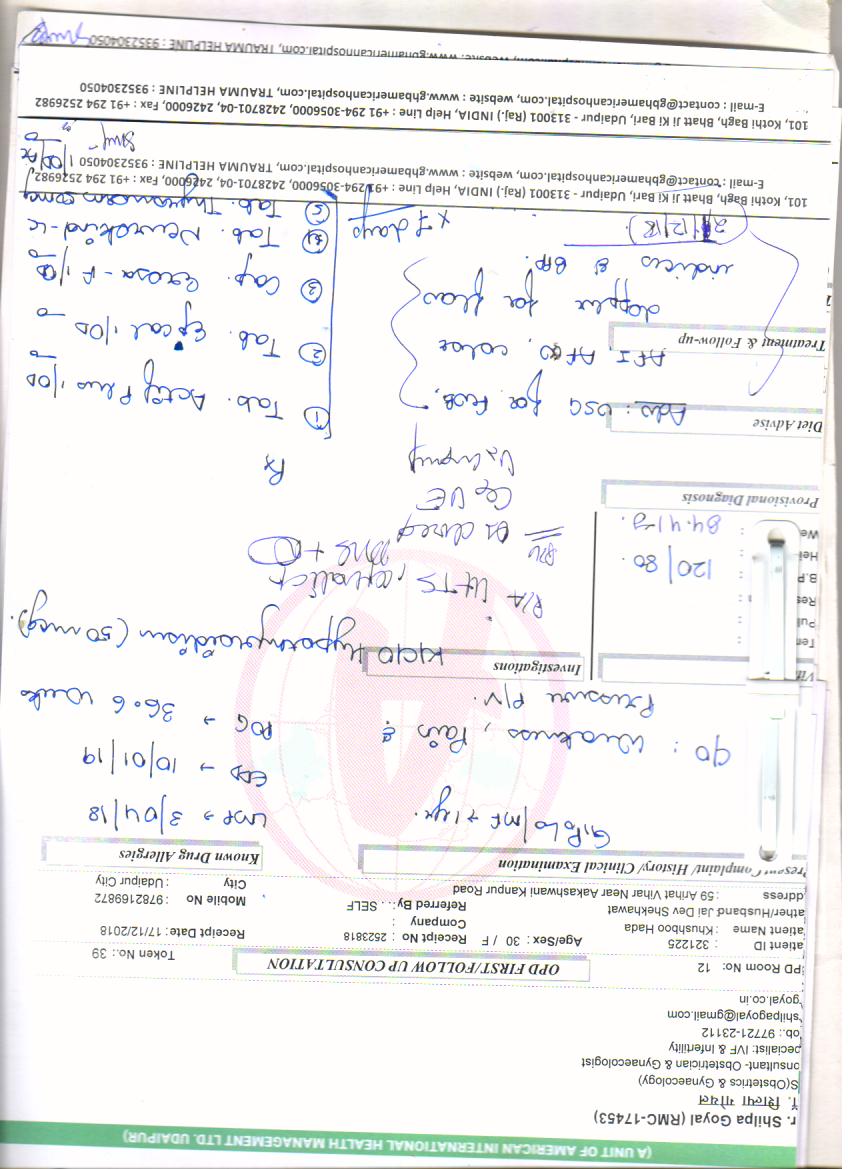 (A UNIT OF AMERICAN INTERNATIONAL HEALTH MANAGEMENT LTD. UDAIPUR)
r. Shilpa Goyal (RMC-17453)
ॉ. शिल्पा गोयल
S(Obstetrics & Gynaecology)
onsultant- Obstetrician & Gynaecologist
pecialist: IVF & Infertility
ob.: 97721-23112
shilpagoyal@gmail.com
goyal.co.in
PD Room No: 12
OPD FIRST/FOLLOW UP CONSULTATION
Token No.: 39
atient ID : 321225
atient Name : Khushboo Hada
Age/Sex : 30 / F
Receipt No : 2523818
Receipt Date : 17/12/2018
ather/Husband Jai Dev Shekhawat
Company :
Mobile No : 9782169872
ddress : 59 Arihat Vihar Near Aakashwani Kanpur Road
Referred By: . . SELF
City : Udaipur City
Present Complaint/ History/ Clinical Examination
Known Drug Allergies
G1P0L0/MF → 1 yr.
LMP → 3/04/18
EDD → 10/01/19
POG → 36.6 weeks
C/O : Weakness, Pain &
Pressure P/V.
Investigations
K/C/O Hypothyroidism (50 mcg).
Vit
Tem :
Pul :
Res :
B.P : 120/80
Hei :
We : 84.41 kg.
P/A UTTS, cephalic
FHS +
Os closed
Cx UE
Vx high up
Provisional Diagnosis
Diet Advise
Treatment & Follow-up
Adv : USG for FWB,
AFI, AFV, color
doppler for flow
indices & BPP.
21/12/18).
Rx
① Tab. Actify Plus 1 OD
② Tab. Epcal 1 OD
③ Cap. Gxosa-F 1 OD
④ Tab. Neurokind-LC
⑤ Tab. Thyronorm 50mcg
1 OD AC
x 7 days
101, Kothi Bagh, Bhatt Ji Ki Bari, Udaipur - 313001 (Raj.) INDIA, Help Line : +91 294-3056000, 2428701-04, 2426000, Fax : +91 294 2526982
E-mail : contact@gbhamericanhospital.com, website : www.gbhamericanhospital.com, TRAUMA HELPLINE : 9352304050
101, Kothi Bagh, Bhatt Ji Ki Bari, Udaipur - 313001 (Raj.) INDIA, Help Line : +91 294-3056000, 2428701-04, 2426000, Fax : +91 294 2526982
E-mail : contact@gbhamericanhospital.com, website : www.gbhamericanhospital.com, TRAUMA HELPLINE : 9352304050
website: www.gbhamericanhospital.com, TRAUMA HELPLINE : 9352304050